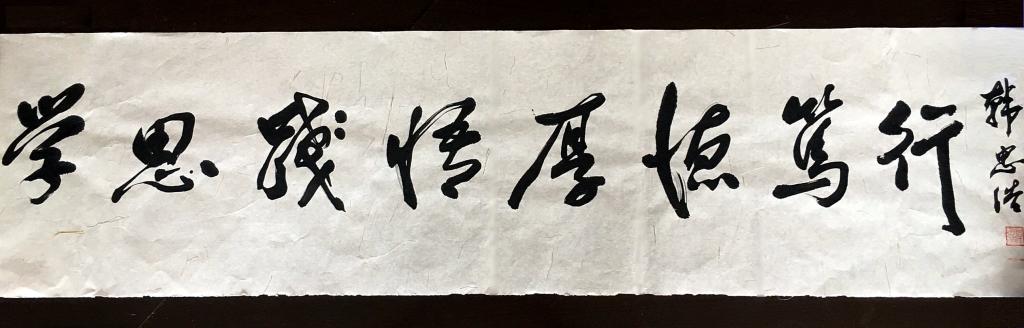 学思践悟厚德笃行
韩忠浩